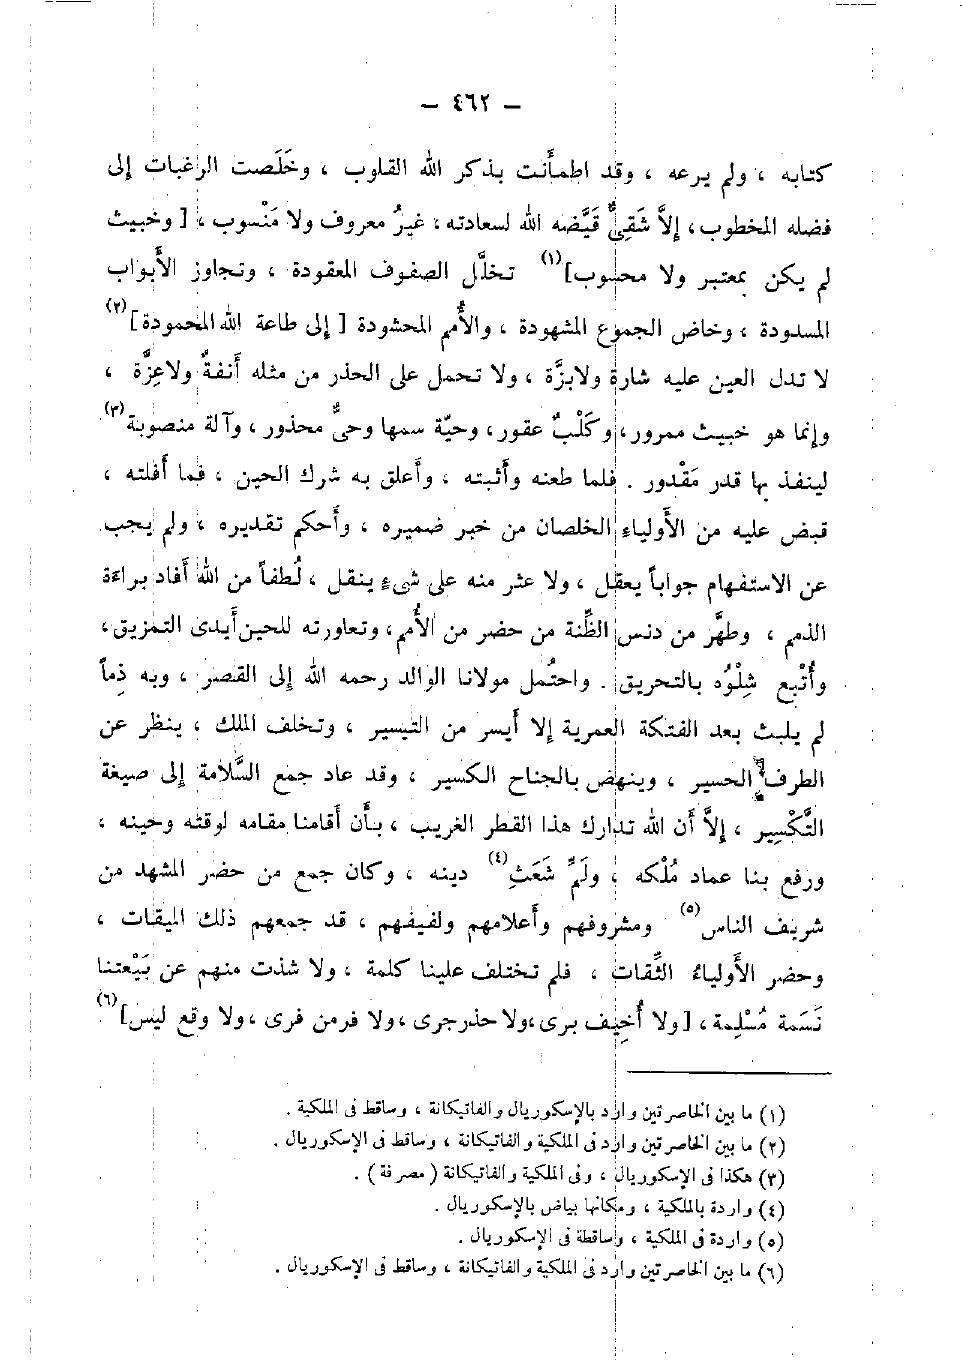 — ٤٦٢ —
كتابه ، ولم يرعه ، وقد اطمأنت بذكر الله القلوب ، وخَلَصت الرغبات إلى
فضله المخطوب ، إلاَّ شَقِىٌّ قَيَّضه الله لسعادته ، غيرُ معروف ولا مَنْسوب ، [ وخبيث
لم يكن بمعتبر ولا محسوب](١) تخلَّل الصفوف المعقودة ، وتجاوز الأبواب
المسدودة ، وخاض الجموع المشهودة ، والأُمم المحشودة [ إلى طاعة الله المحمودة](٢)
لا تدل العين عليه شارة ولابزَّة ، ولا تحمل على الحذر من مثله أَنفةٌ ولاعِزَّة ،
وإنما هو خبيث ممرور ، وكَلْبٌ عقور ، وحيّة سمها وحىٌّ محذور ، وآلة منصوبة(٣)
لينفذ بها قدر مَقْدور . فلما طعنه وأَثبته ، وأَعلق به شرك الحين ، فما أَفلته ،
قبض عليه من الأَولياء الخلصان من خبر ضميره ، وأَحكم تقديره ، ولم يجب
عن الاستفهام جواباً يعقل ، ولا عثر منه على شىءٍ ينقل ، لُطفاً من الله أَفاد براءة
الذمم ، وطهَّر من دنس الظِّنة من حضر من الأُمم ، وتعاورته للحين أَيدى التمزيق ،
وأُتْبع شِلْوُه بالتحريق . واحتُمل مولانا الوالد رحمه الله إلى القصر ، وبه ذِماً
لم يلبث بعد الفتكة العمرية إلا أَيسر من التيسير ، وتخلف الملك ، ينظر عن
الطرف الحسير ، وينهض بالجناح الكسير ، وقد عاد جمع السَّلامة إلى صيغة
التَّكْسِير ، إلاَّ أن الله تدارك هذا القطر الغريب ، بأَن أَقامنا مقامه لوقته وحينه ،
ورفع بنا عماد مُلْكه ، ولَمَّ شَعَثِ(٤) دينه ، وكان جمع من حضر المشهد من
شريف الناس(٥) ومشروفهم وأَعلامهم ولفيفهم ، قد جمعهم ذلك الميقات ،
وحضر الأَولياءُ الثِّقات ، فلم تختلف علينا كلمة ، ولا شذت منهم عن بَيْعتنا
نَسَمة مُسْلِمة ، [ ولا أُخِيف برى ،ولا حذرجرى ،ولا فرمن فرى ،ولا وقع ليس](٦)
(١) ما بين الخاصرتين وارد بالإسكوريال والفاتيكانة ، وساقط فى الملكية .
(٢) ما بين الخاصرتين وارد فى الملكية والفاتيكانة ، وساقط فى الإسكوريال .
(٣) هكذا فى الإسكوريال ، وفى الملكية والفاتيكانة ( مصرفة ) .
(٤) واردة بالملكية ، ومكانها بياض بالإسكوريال .
(٥) واردة فى الملكية ، وساقطة فى الإسكوريال .
(٦) ما بين الخاصرتين وارد فى الملكية والفاتيكانة ، وساقط فى الإسكوريال .